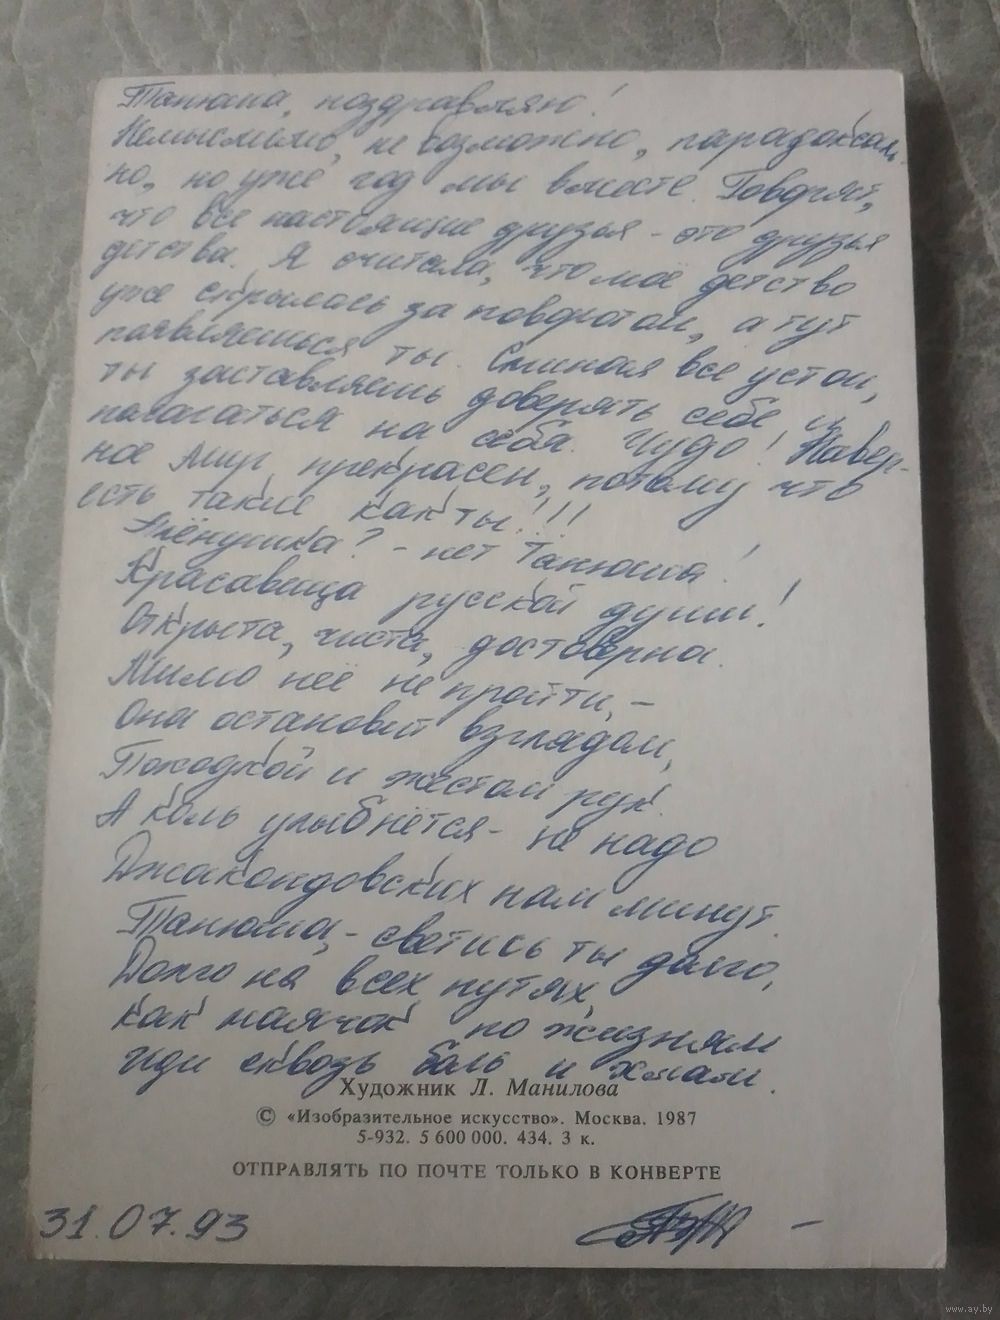 Танюша, поздравляю!
Немыслимо, не возможно, парадоксаль-
но, но уже год мы вместе. Говорят,
что все настоящие друзья - это друзья
детства. Я считала, что моё детство
уже скрылось за поворотом, а тут
появляешься ты. Сминая все устои,
ты заставляешь доверять себе и
полагаться на себя. Чудо! Навер-
ное мир прекрасен, потому что
есть такие как ты!!!
Алёнушка? - нет Танюша!
Красавица русской души!
Открыта, чиста, достоверна.
Мимо неё не пройти, -
Она остановит взглядом,
Походкой и жестом рук.
А коль улыбнётся - не надо
Джакондовских нам минут.
Танюша, - светись ты долго,
Долго на всех путях,
Как маячок по жизням
Иди сквозь боль и
Художник Л. Манилова
© «Изобразительное искусство». Москва. 1987
5-932. 5 600 000. 434. 3 к.
ОТПРАВЛЯТЬ ПО ПОЧТЕ ТОЛЬКО В КОНВЕРТЕ
31.07.93
www.ay.by